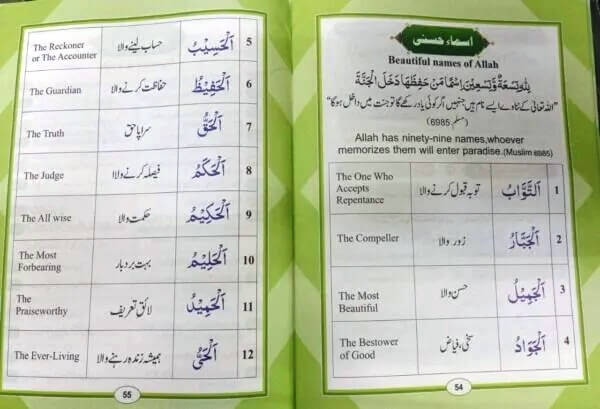 اسماء حسنٰی
Beautiful names of Allah
لِلّٰهِ تِسْعَةٌ وَّتِسْعِيْنَ اِسْمًا مَنْ حَفِظَهَا دَخَلَ الْجَنَّةَ
"اللہ تعالیٰ کے ننانوے ایسے نام ہیں جنہیں اگر کوئی یاد رکھے گا تو جنت میں داخل ہوگا"
(مسلم: 6985)
Allah has ninety-nine names,whoever
memorizes them will enter paradise.(Muslim 6985)
1 اَلتَّوَّابُ توبہ قبول کرنے والا
The One Who
Accepts
Repentance
2 اَلْجَبَّارُ زور والا The Compeller
3 اَلْجَمِيْلُ حسن والا
The Most
Beautiful
4 اَلْجَوَادُ سخی، فیاض
The Bestower
of Good
54
5 اَلْحَسِيْبُ حساب لینے والا
The Reckoner
or The Accounter
6 اَلْحَفِيْظُ حفاظت کرنے والا The Guardian
7 اَلْحَقُّ سراپا حق The Truth
8 اَلْحَكَمُ فیصلہ کرنے والا The Judge
9 اَلْحَكِيْمُ حکمت والا The All wise
10 اَلْحَلِيْمُ بہت بردبار
The Most
Forbearing
11 اَلْحَمِيْدُ لائق تعریف
The
Praiseworthy
12 اَلْحَيُّ ہمیشہ زندہ رہنے والا The Ever-Living
55